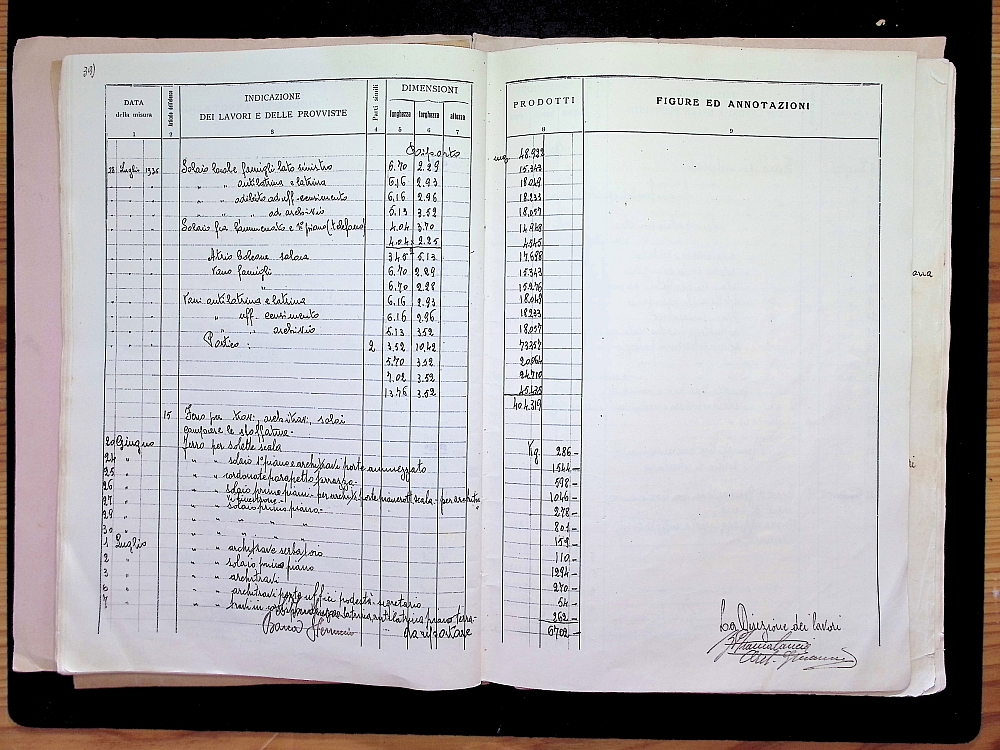 39)
DATA della misura
INDICAZIONE DEI LAVORI E DELLE PROVVISTE
Parti simili
DIMENSIONI
lunghezza larghezza altezza
PRODOTTI
FIGURE ED ANNOTAZIONI
1 2 3 4 5 6 7 8 9
Riporto mq 48.922
22 Luglio 1935 Solaio locale famigli lato sinistro 6.70 2.29 15.343
" " " antilatrina e latrina 6.16 2.93 18.049
" " " adibito ad uff. censimento 6.16 2.96 18.233
" " " " ad archivio 5.13 3.52 18.057
Solaio fra l'ammezzato e 1° piano (telefono) 4.04 3.70 14.948
4.04 2.25 4.545
Atrio Balcone salaia 3.45 5.13 17.698
Vano famigli 6.70 2.29 15.343
" 6.70 2.28 15.276
Vani antilatrina e latrina 6.16 2.93 18.049
" uff. censimento 6.16 2.96 18.233
" " archivio 5.13 3.52 18.057
Portico : 2 3.52 10.42 73.357
5.70 3.52 20.064
7.02 3.52 24.710
13.76 3.52 48.435
404.319
15 Ferro per travi, architravi, solai
comprese le staffature
20 Giugno Ferro per solette scala Kg. 286 -
24 " " " solaio 1° piano e architravi porte ammezzato 1544 -
25 " " " cordonate parapetto terrazza 598 -
26 " " " solaio primo piano - per architr. porte pianerott. scala - per architr. 1046 -
27 " " " solaio primo piano - 278 -
29 " " " " " " 801 -
30 " " " " " " 159 -
1 Luglio " " architrave serbatoio 110 -
2 " " " solaio primo piano 1294 -
3 " " " architravi 270 -
6 " " " architravi porte uffici podestà - segretario 54 -
7 " " " latrina, antilatrina piano terra - 262 -
da riportare 6702 -
La Direzione dei lavori